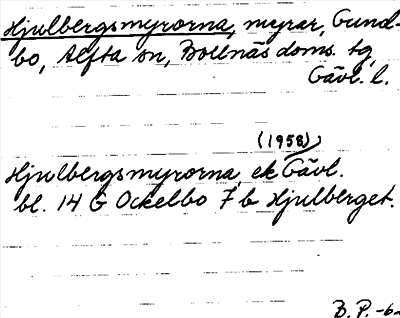 Hjulbergsmyrorna, myrar, Gund-
bo, Alfta sn, Bollnäs doms. tg,
Gävl. l.
(1958)
Hjulbergsmyrorna, ek Gävl.
bl. 14 G Ockelbo 7 b Hjulberget.
B. P. -62